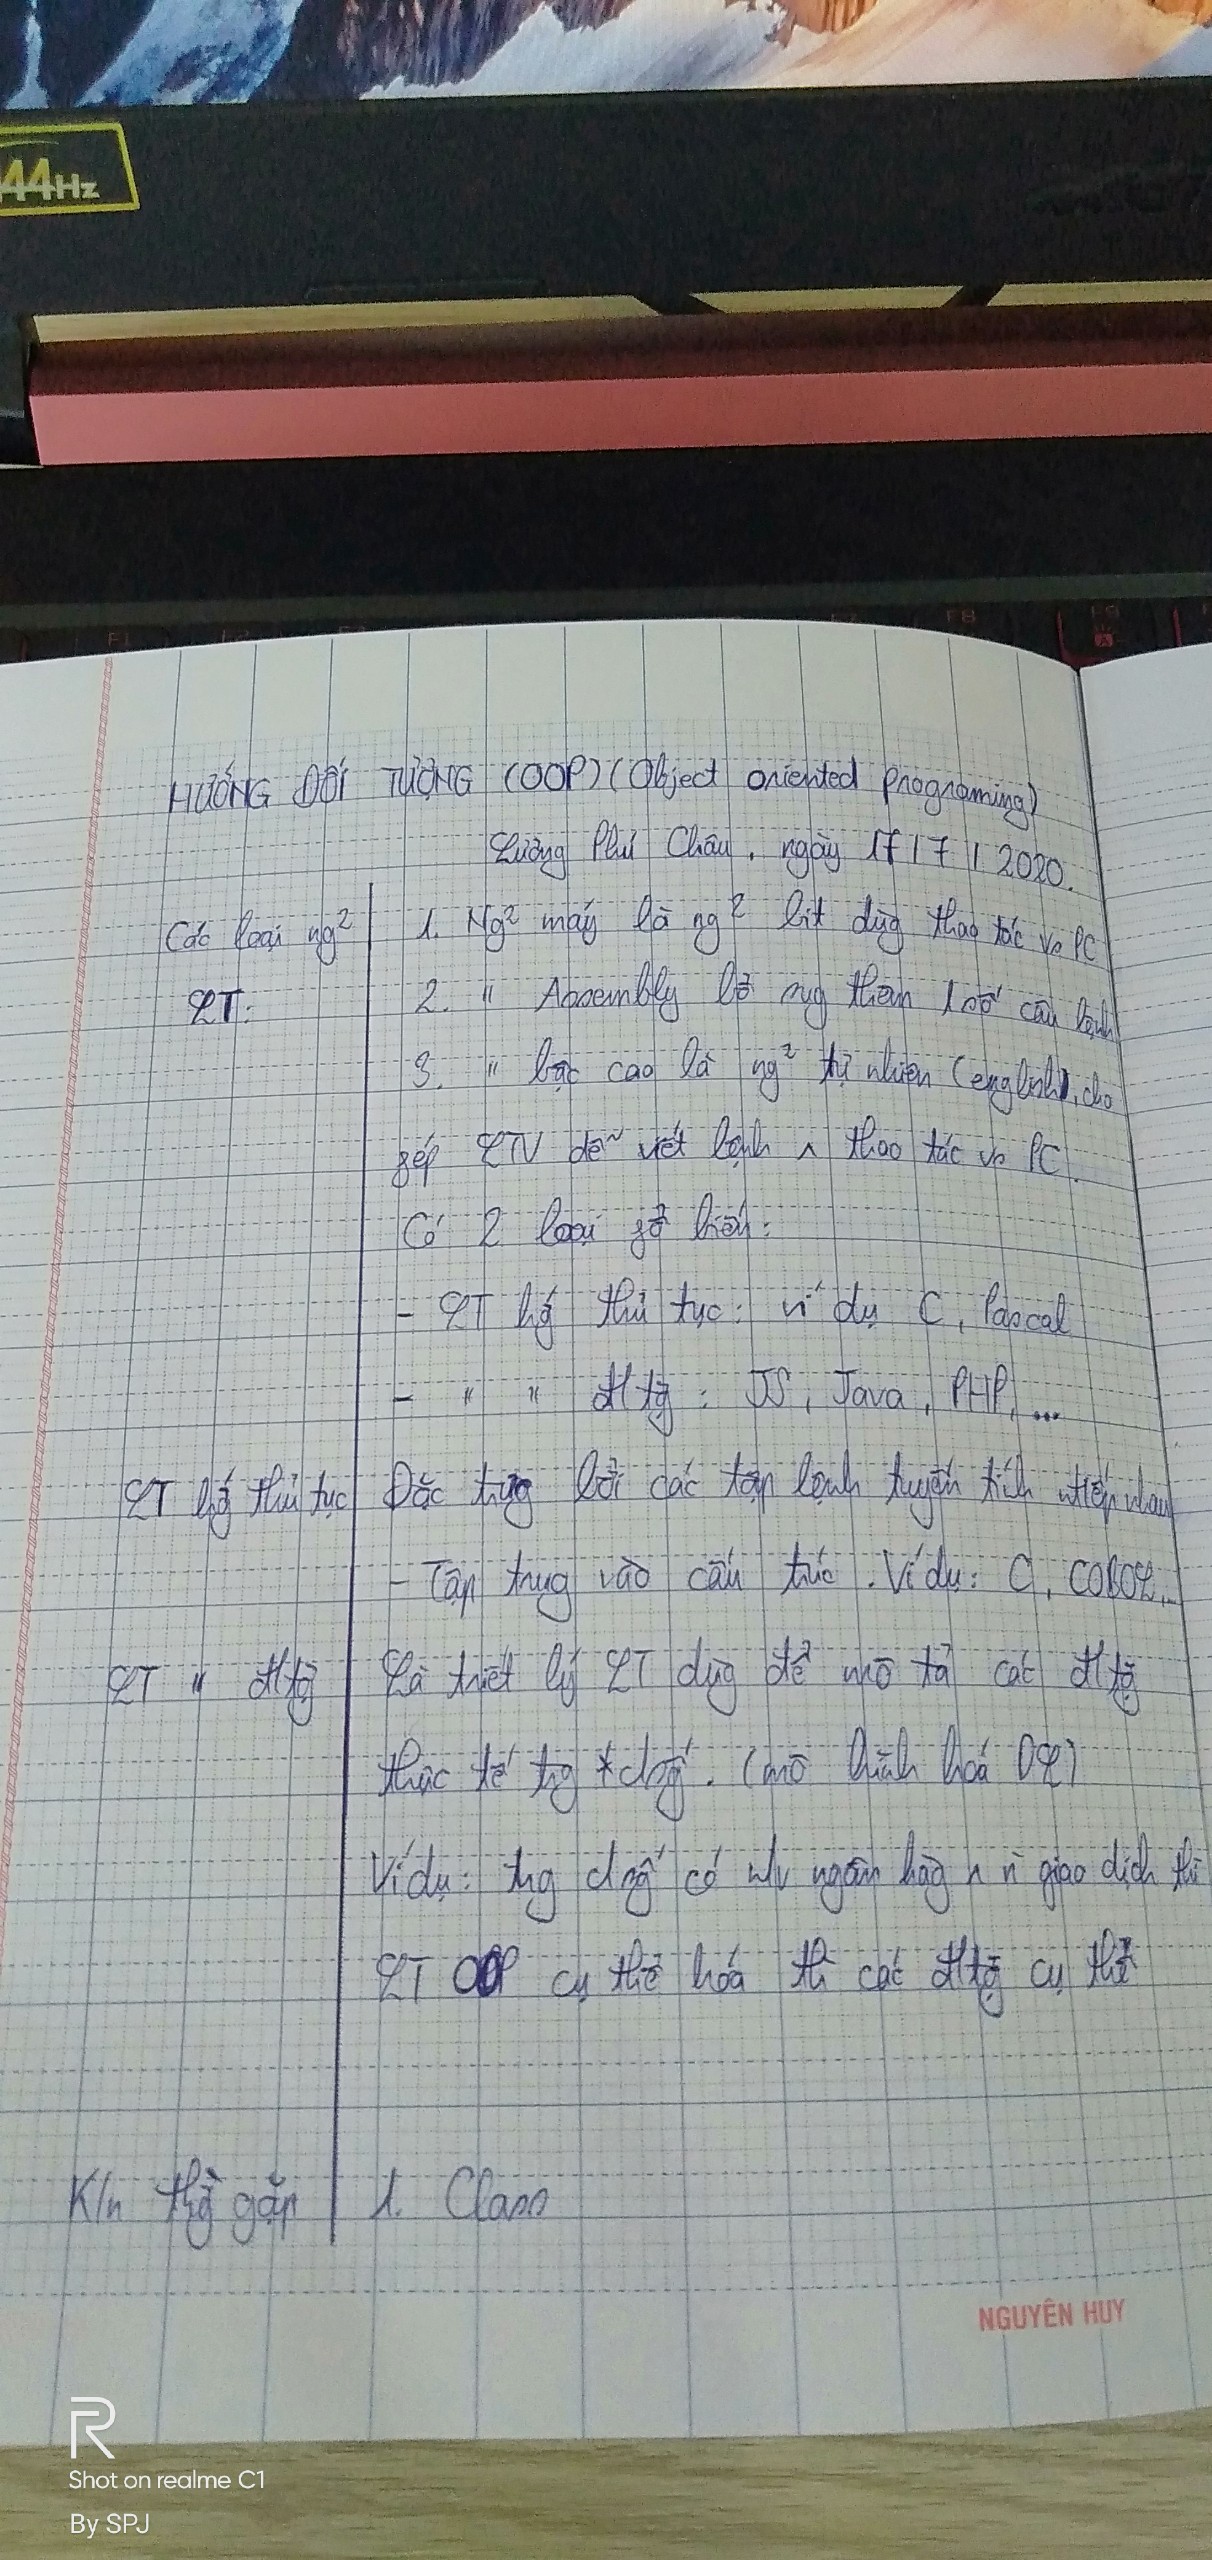 44Hz
F1
F8
F9
HƯỚNG ĐỐI TƯỢNG (OOP) (Object oriented Programing)
Lương Phú Châu, ngày 17/7/2020.
Các loại ng² | 1. Ng² máy là ng² bit dùg thao tác vs PC
LT: | 2. " Assembly bổ sug thêm 1 số câu lệnh
3. " bậc cao là ng² tự nhiên (english), cho
fép LTV dễ viết lệnh ^ thao tác vs PC.
Có 2 loại fổ biến:
- LT hg´ thủ tục: ví dụ C, Pascal
- " " đ/tg̣̣: JS, Java, PHP, ...
LT hg´ thủ tục | Đặc trưg bởi các tập lệnh tuyến tính ntiếp nhau
- Tập trug vào cấu trúc. Ví dụ: C, COBOL,..
LT " đ/tg | Là triết lý LT dùg để mô tả các đ/tg
thực tế trg *c/sg´. (mô hình hoá DL)
Ví dụ: trg c/sg´ có n/v ngân hàg giao dịch thì
LT OOP cụ thể hóa th các đ/tg cụ thể
K/n thg gặp | 1. Class
NGUYÊN HUY
R
Shot on realme C1
By SPJ